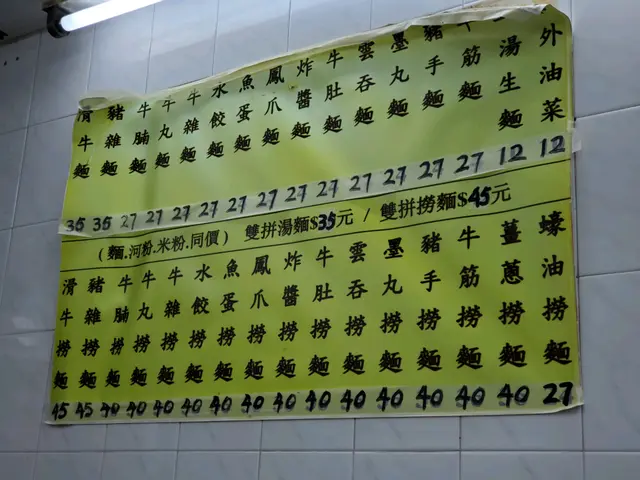 滑牛麵 35
豬雜麵 35
牛腩麵 27
牛丸麵 27
牛雜麵 27
水餃麵 27
魚蛋麵 27
鳳爪麵 27
炸醬麵 27
牛肚麵 27
雲吞麵 27
墨丸麵 27
豬手麵 27
牛筋麵 27
湯生麵 12
外油菜 12
(麵.河粉.米粉.同價) 雙拼湯麵$35元 / 雙拼撈麵$45元
滑牛撈麵 45
豬雜撈麵 45
牛腩撈麵 40
牛丸撈麵 40
牛雜撈麵 40
水餃撈麵 40
魚蛋撈麵 40
鳳爪撈麵 40
炸醬撈麵 40
牛肚撈麵 40
雲吞撈麵 40
墨丸撈麵 40
豬手撈麵 40
牛筋撈麵 40
薑蔥撈麵 40
蠔油撈麵 27